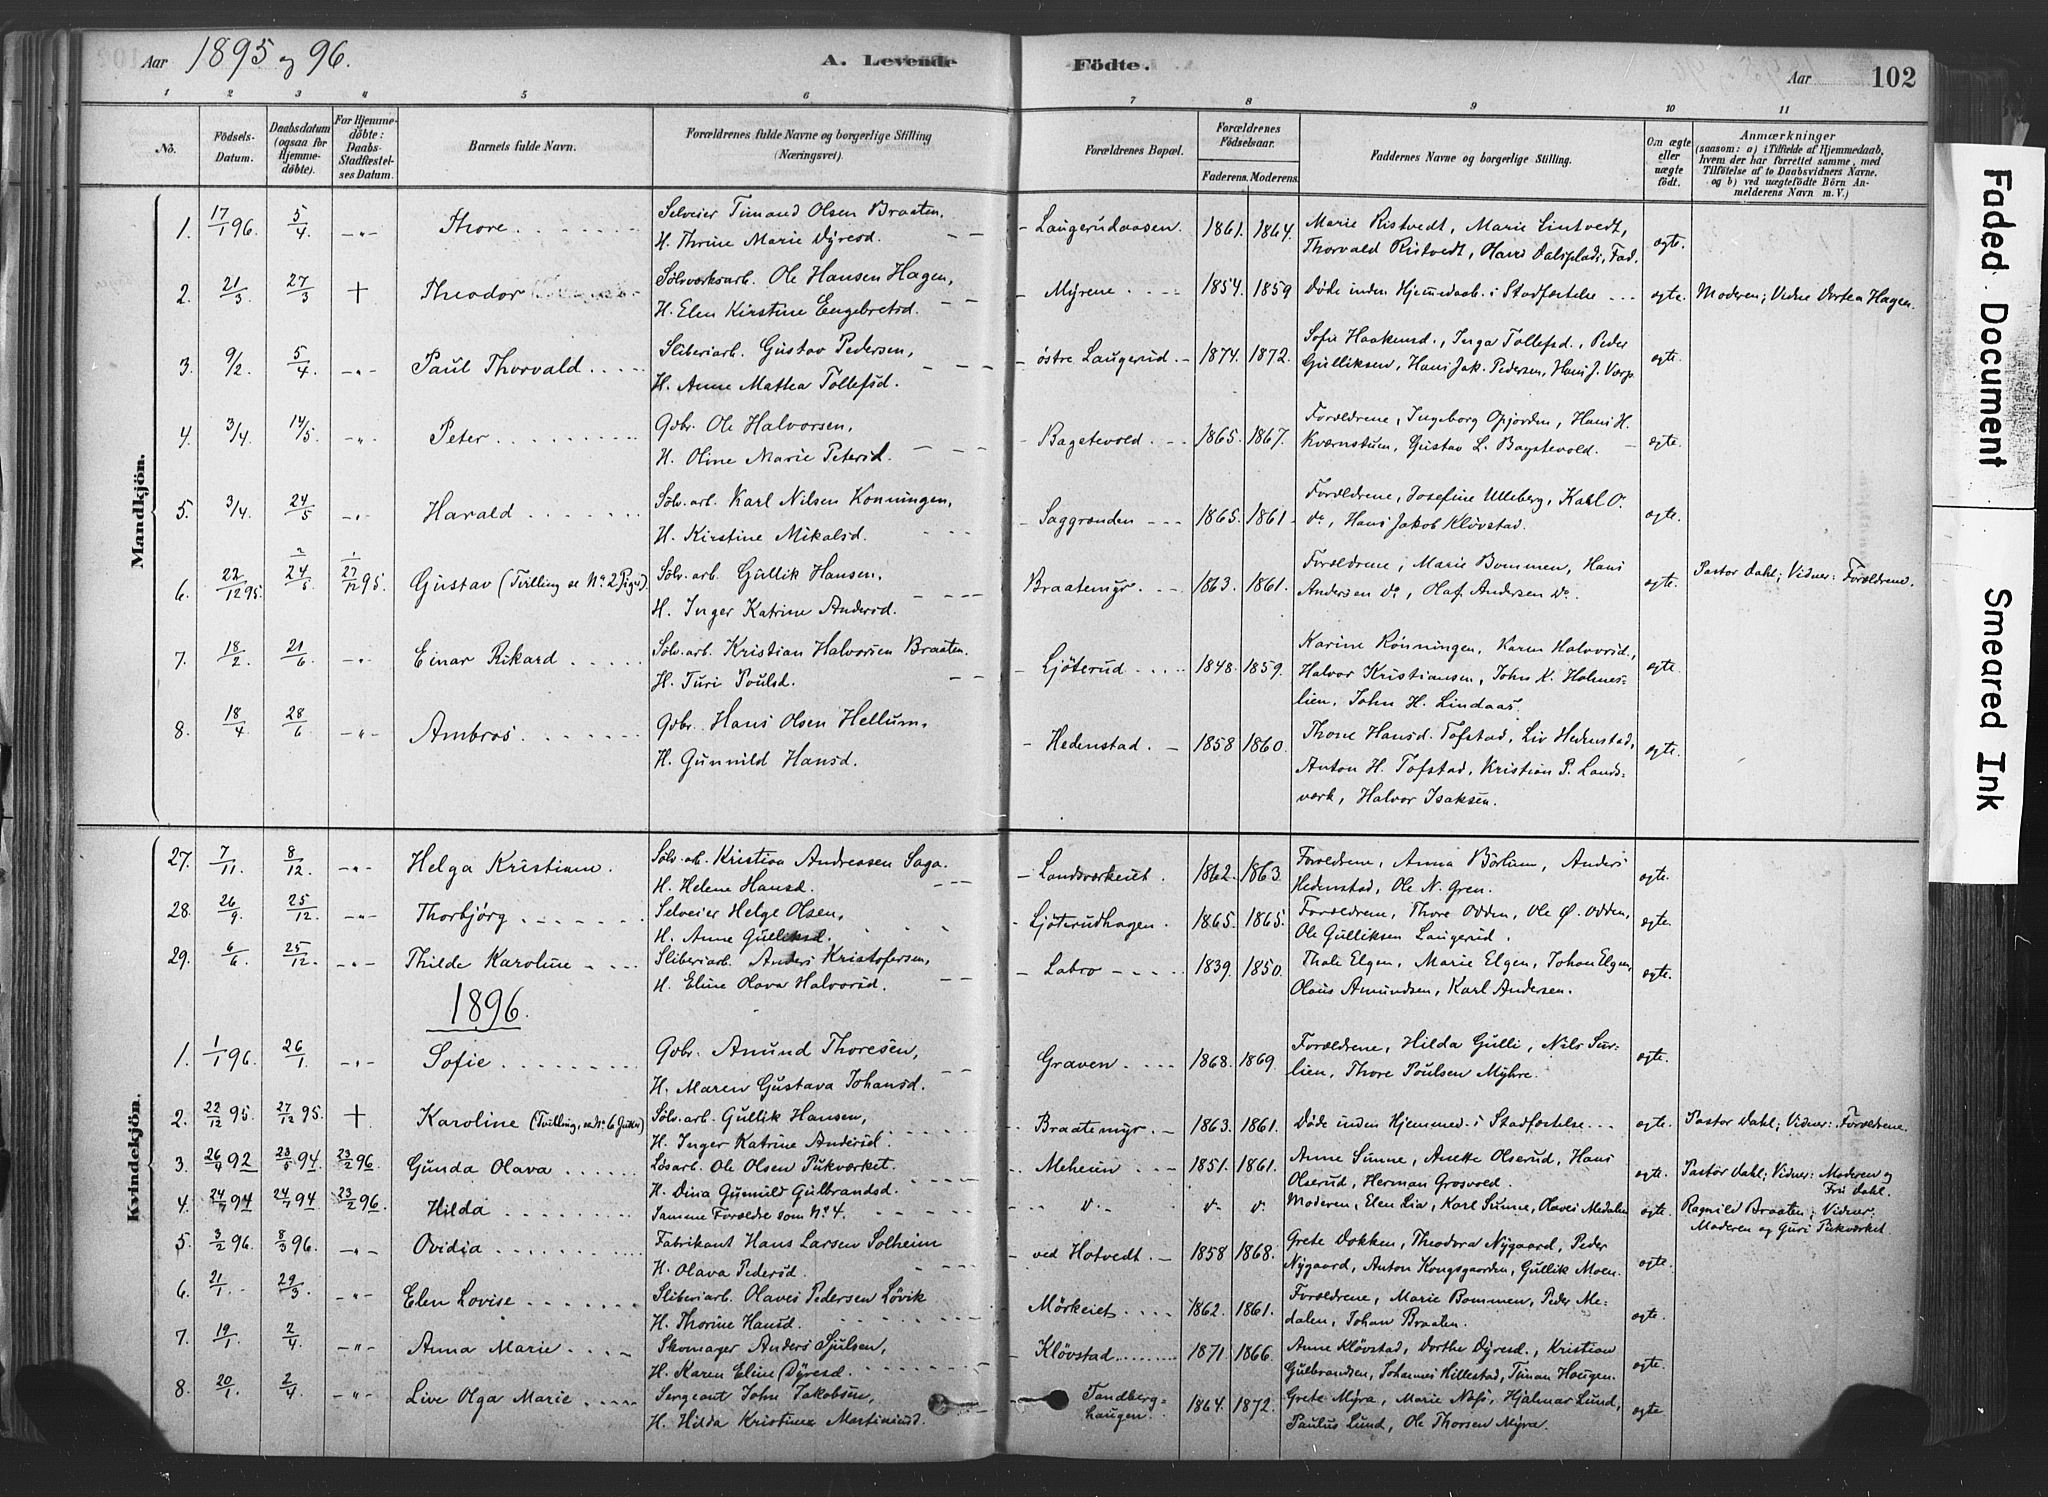 Aar 1895 og 96. A. Levende Födte. Aar 102
1 2 3 4 5 6 7 8 9 10 11
No. Födsels-Datum. Daabsdatum (ogsaa for Hjemmedöbte). For Hjemmedöbte: Daabs-Stadfæstelses Datum. Barnets fulde Navn. Forældrenes fulde Navne og borgerlige Stilling (Næringsvei). Forældrenes Bopæl. Forældrenes Födselsaar. Faderens. Moderens. Faddernes Navne og borgerlige Stilling. Om ægte eller uægte födt. Anmærkninger (saasom: a) i Tilfælde af Hjemmedaab, hvem der har forrettet samme, med Tilföielse af to Daabsvidners Navne, og b) ved uægtefödte Börn Anmelderens Navn m. V.)
Mandkjön.
1. 17/1 96. 5/4 -„- Thore Selveier Timand Olsen Braaten, Laugerudaasen 1861. 1864. Marie Ristvedt, Marie Lintvedt, ægte.
H. Thrine Marie Dyresd. Thorvald Ristvedt, Dalsplads, Fad.
2. 21/3. 27/3 + Theodor Sølvværksarb. Ole Hansen Hagen, Myrene 1854. 1859 Døde inden Hjemmedaab. i Stadfæstelse ægte. Moderen; Vidne Dortea Hagen.
H. Elen Kirstine Engebretsd.
3. 9/2. 5/4 -„- Paul Thorvald Sliberiarb. Gustav Pedersen, østre Laugerud. 1874. 1872. Sofie Haakensd., Inga Tollefsd., Peder ægte.
H. Anne Mattea Tollefsd. Gulliksen, Hans Jak. Pedersen, Hans J. Varp
4. 3/4 14/5. -„- Peter Gdbr. Ole Halvorsen, Bagstevold 1865. 1867. Forældrene, Ingeborg Opjorden, Hans H. ægte.
H. Oline Marie Petersd. Kværnstuen, Gustav L. Bagstevold.
5. 3/4. 24/5 -„- Harald Sølv.arb. Karl Nilsen Konningen, Saggrenden 1865. 1861. Forældrene, Josefine Ulleberg, Karl O. ægte.
H. Kirstine Mikalsd. do, Hans Jakob Kløvstad.
6. 22/12 95. 24/5 27/12 95. Gustav (Tvilling se No 2 Piger) Sølv.arb. Gullik Hansen, Braatemyr 1863. 1861. Forældrene, Marie Bommen, Hans ægte. Pastor Dahl; Vidner: Forældrene.
H. Inger Katrine Andersd. Andersen do, Olaf Andersen do.
7. 18/2. 21/6 -„- Einar Rikard Sølv.arb. Kristian Halvorsen Braaten. Ljøterud 1848. 1859. Karine Rønningen, Karen Halvorsd., ægte.
H. Turi Poulsd. Halvor Kristiansen, John K. Holmes-
lien, John H. Lindaas.
8. 18/4 28/6 -„- Ambros Gdbr. Hans Olsen Hellum, Hedenstad. 1858 1860. Thone Hansd. Tofstad, Liv Hedenstad, ægte.
H. Gunnild Hansd. Anton H. Tofstad, Kristian P. Lands-
værk, Halvor Isaksen.
Kvindekjön.
27. 7/11. 8/12 -„- Helga Kristiane. Sølv.arb. Kristian Andreasen Saga. Landsværkeiet. 1862. 1863. Forældrene, Anna Børlum, Anders ægte.
H. Helene Hansd. Hedenstad, Ole N. Gren.
28. 26/9. 25/12. -„- Thorbjørg Selveier Helge Olsen, Ljøterudhagen. 1865. 1865. Forældrene, Thore Odden, Ole Ø. Odden, ægte.
H. Anne Gulliksd. Ole Gulliksen Laugerud.
29. 6/6 25/12. -„- Thilde Karoline Sliberiarb. Anders Kristofersen, Labro 1839. 1850. Thale Elgen, Marie Elgen, Johan Elgen, ægte.
H. Eline Olava Halvorsd. Olaus Amundsen, Karl Andersen.
1896.
1. 1/1 96. 26/1 -„- Sofie Gdbr. Amund Thoresen, Graven 1868. 1869. Forældrene, Hilda Gulli, Nils Sur- ægte.
H. Maren Gustava Johansd. lien, Thore Poulsen Myhre.
2. 22/12 95. 27/12 95. + Karoline (Tvilling, se No 6 Gutter) Sølv.arb. Gullik Hansen, Braatemyr 1863. 1861. Døde inden Hjemmed. i Stadfæstelse ægte. Pastor Dahl; Vidner: Forældrene.
H. Inger Katrine Andersd.
3. 26/9 92 23/5 94 23/2 96. Gunda Olava Løsarb. Ole Olsen Pukværket. Meheien 1851. 1861. Anne Sunne, Anette Olserud, Hans ægte. Pastor Dahl; Vidner: Moderen og
H. Dina Gunnild Gulbrandsd. Olserud, Herman Grosvold. Fru Dahl.
4. 24/7 94 24/7 94 23/2 96. Hilda Samme Forældre som No 4. v. v. v. Moderen, Elen Lia, Karl Sunne, Olaves Medalen ægte. Ragnild Braaten; Vidner:
Moderen og Guri Pukværket
5. 3/2 96. 8/3 96. -„- Ovidia Fabrikant Hans Larsen Solheim ved Hotvedt 1858 1868. Grete Dokken, Theodora Nygaard, Peder ægte.
H. Olava Pedersd. Nygaard, Anton Kongsgaarden, Gullik Moen.
6. 21/1. 29/3 -„- Elen Lovise Sliberiarb. Olaves Pedersen Løvik Mörkeiet 1862. 1861. Forældrene, Marie Bommen, Peder Me- ægte.
H. Thorine Hansd. dalen, Johan Braaten.
7. 19/1. 2/4 -„- Anna Marie Skomager Anders Sjulsen, Kløvstad 1871. 1866. Anne Kløvstad, Dorthe Dyresd., Kristian ægte.
H. Karen Eline Dyresd. Gulbrandsen, Johannes Hillestad, Timan Haugen.
8. 20/1. 2/4 -„- Live Olga Marie Sergeant John Jakobsen, Tandberg- 1864. 1872. Grete Myra, Marie Næss, Hjalmar Lund, ægte
H. Hilda Kristine Martiniusd. haugen. Paulus Lund, Ole Thorsen Myra.
Faded Document
Smeared Ink